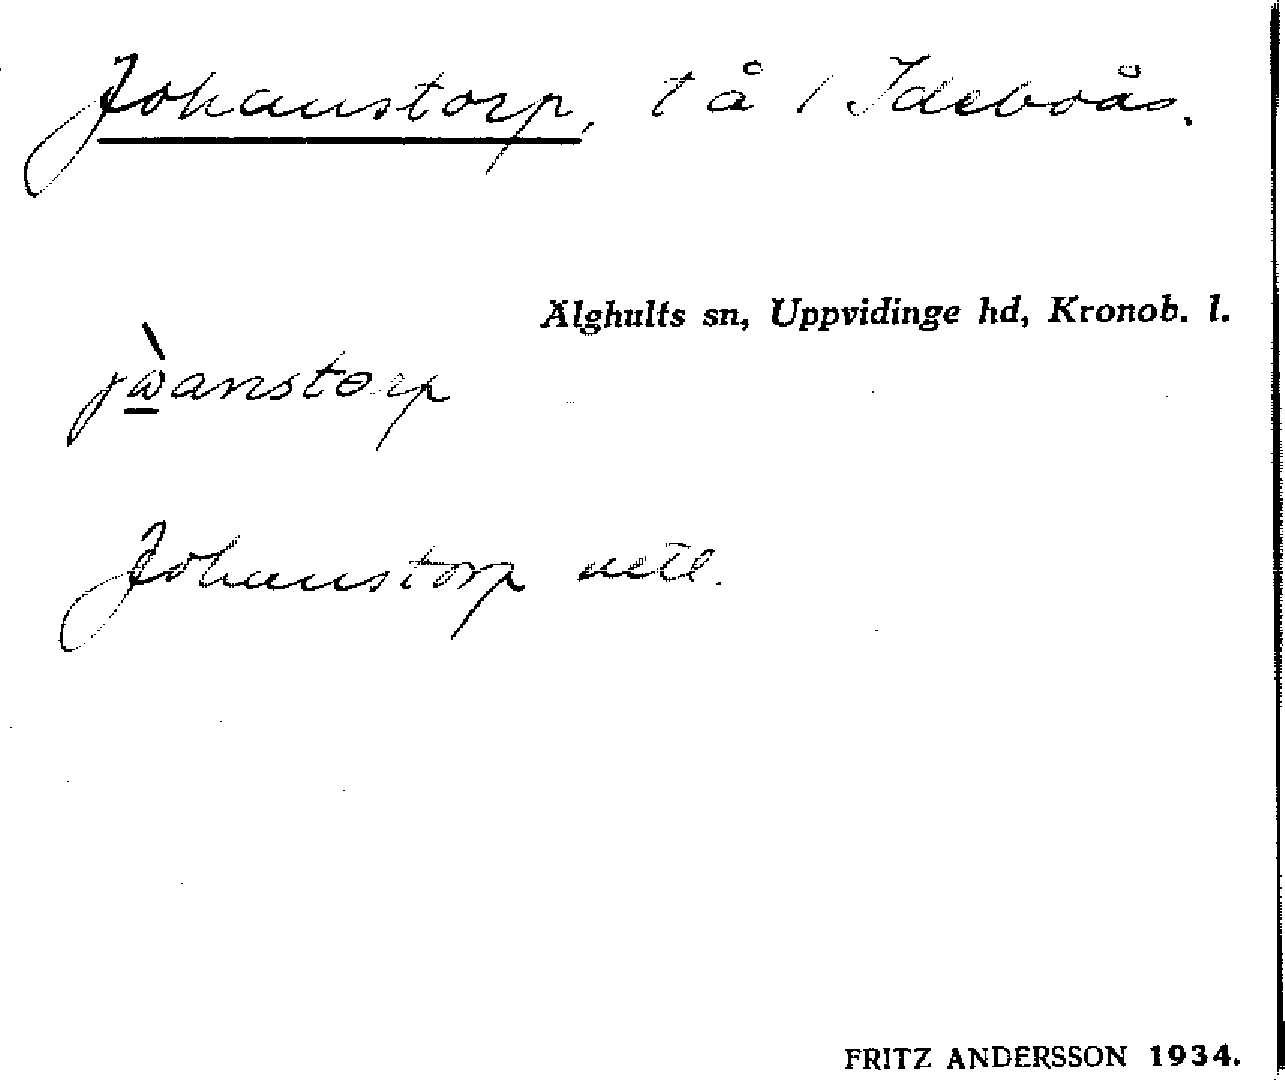 Johanstorp, t å 1 Ideboås.
Älghults sn, Uppvidinge hd, Kronob. l.
jὼ̠anstorp
Johanstorp uttl.
FRITZ ANDERSSON 1934.